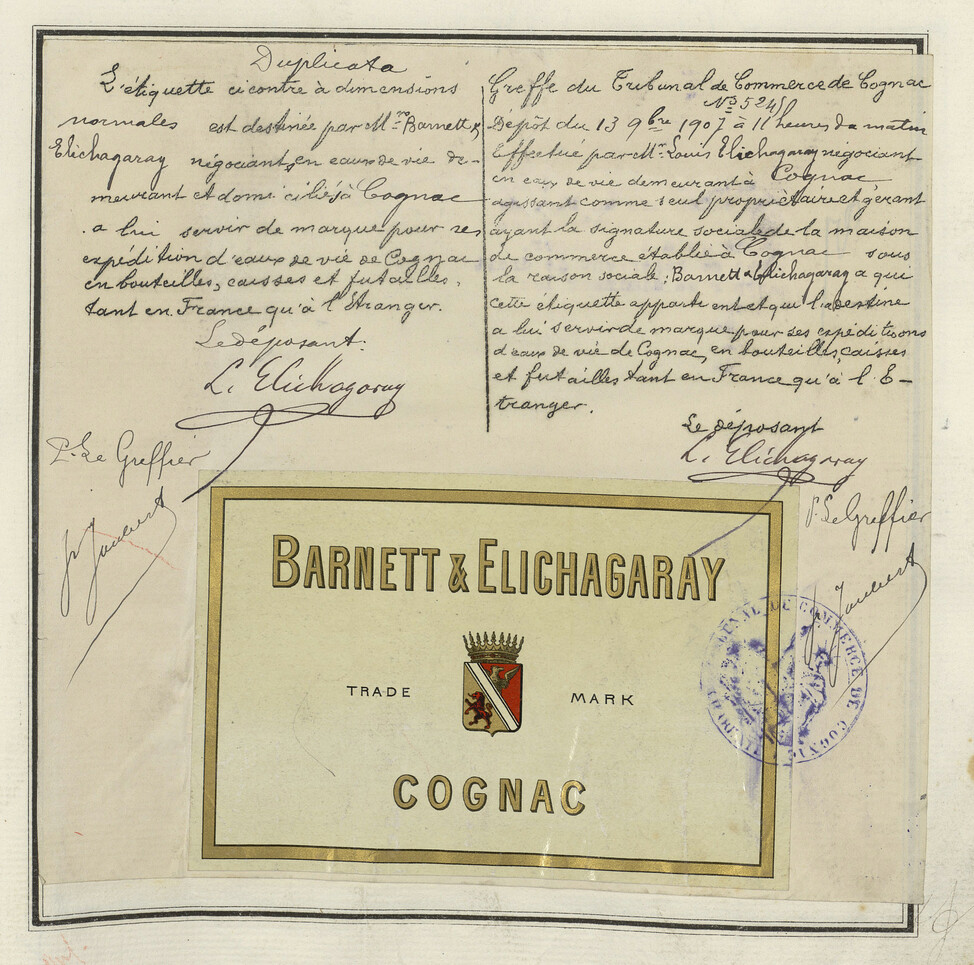 Duplicata
L'étiquette ci contre à dimensions
normales est destinée par Mr Barnett &
Elichagaray négociant, en eaux de vie de-
meurant et domicilié à Cognac
a lui servir de marque pour ses
expédition d'eaux de vie de Cognac
en bouteilles, caisses et futailles,
tant en France qu'à l'Etranger.
Le déposant:
L. Elichagaray
P. Le Greffier
Greffe du Tribunal de Commerce de Cognac
No 5245
Dépôt du 13 9bre 1907 à 11 heures du matin
Effectué par Mr Louis Elichagaray négociant
en eaux de vie demeurant à Cognac
agissant comme seul propriétaire et gérant
ayant la signature sociale de la maison
de commerce établie à Cognac sous
la raison sociale: Barnett & Elichagaray a qui
cette étiquette appartient et qui la destine
a lui servir de marque pour ses expéditions
d'eaux de vie de Cognac, en bouteilles, caisses
et futailles tant en France qu'à l'E-
tranger.
Le déposant
L. Elichagaray
P. Le Greffier
BARNETT & ELICHAGARAY
TRADE MARK
COGNAC
TRIBUNAL DE COMMERCE DE COGNAC